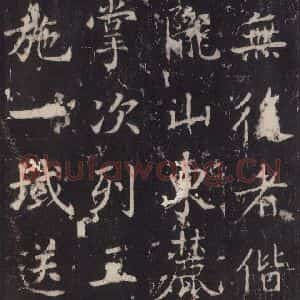 無後者偕
隴山東麓
掌次列工
施一域送
Shufawang.CN